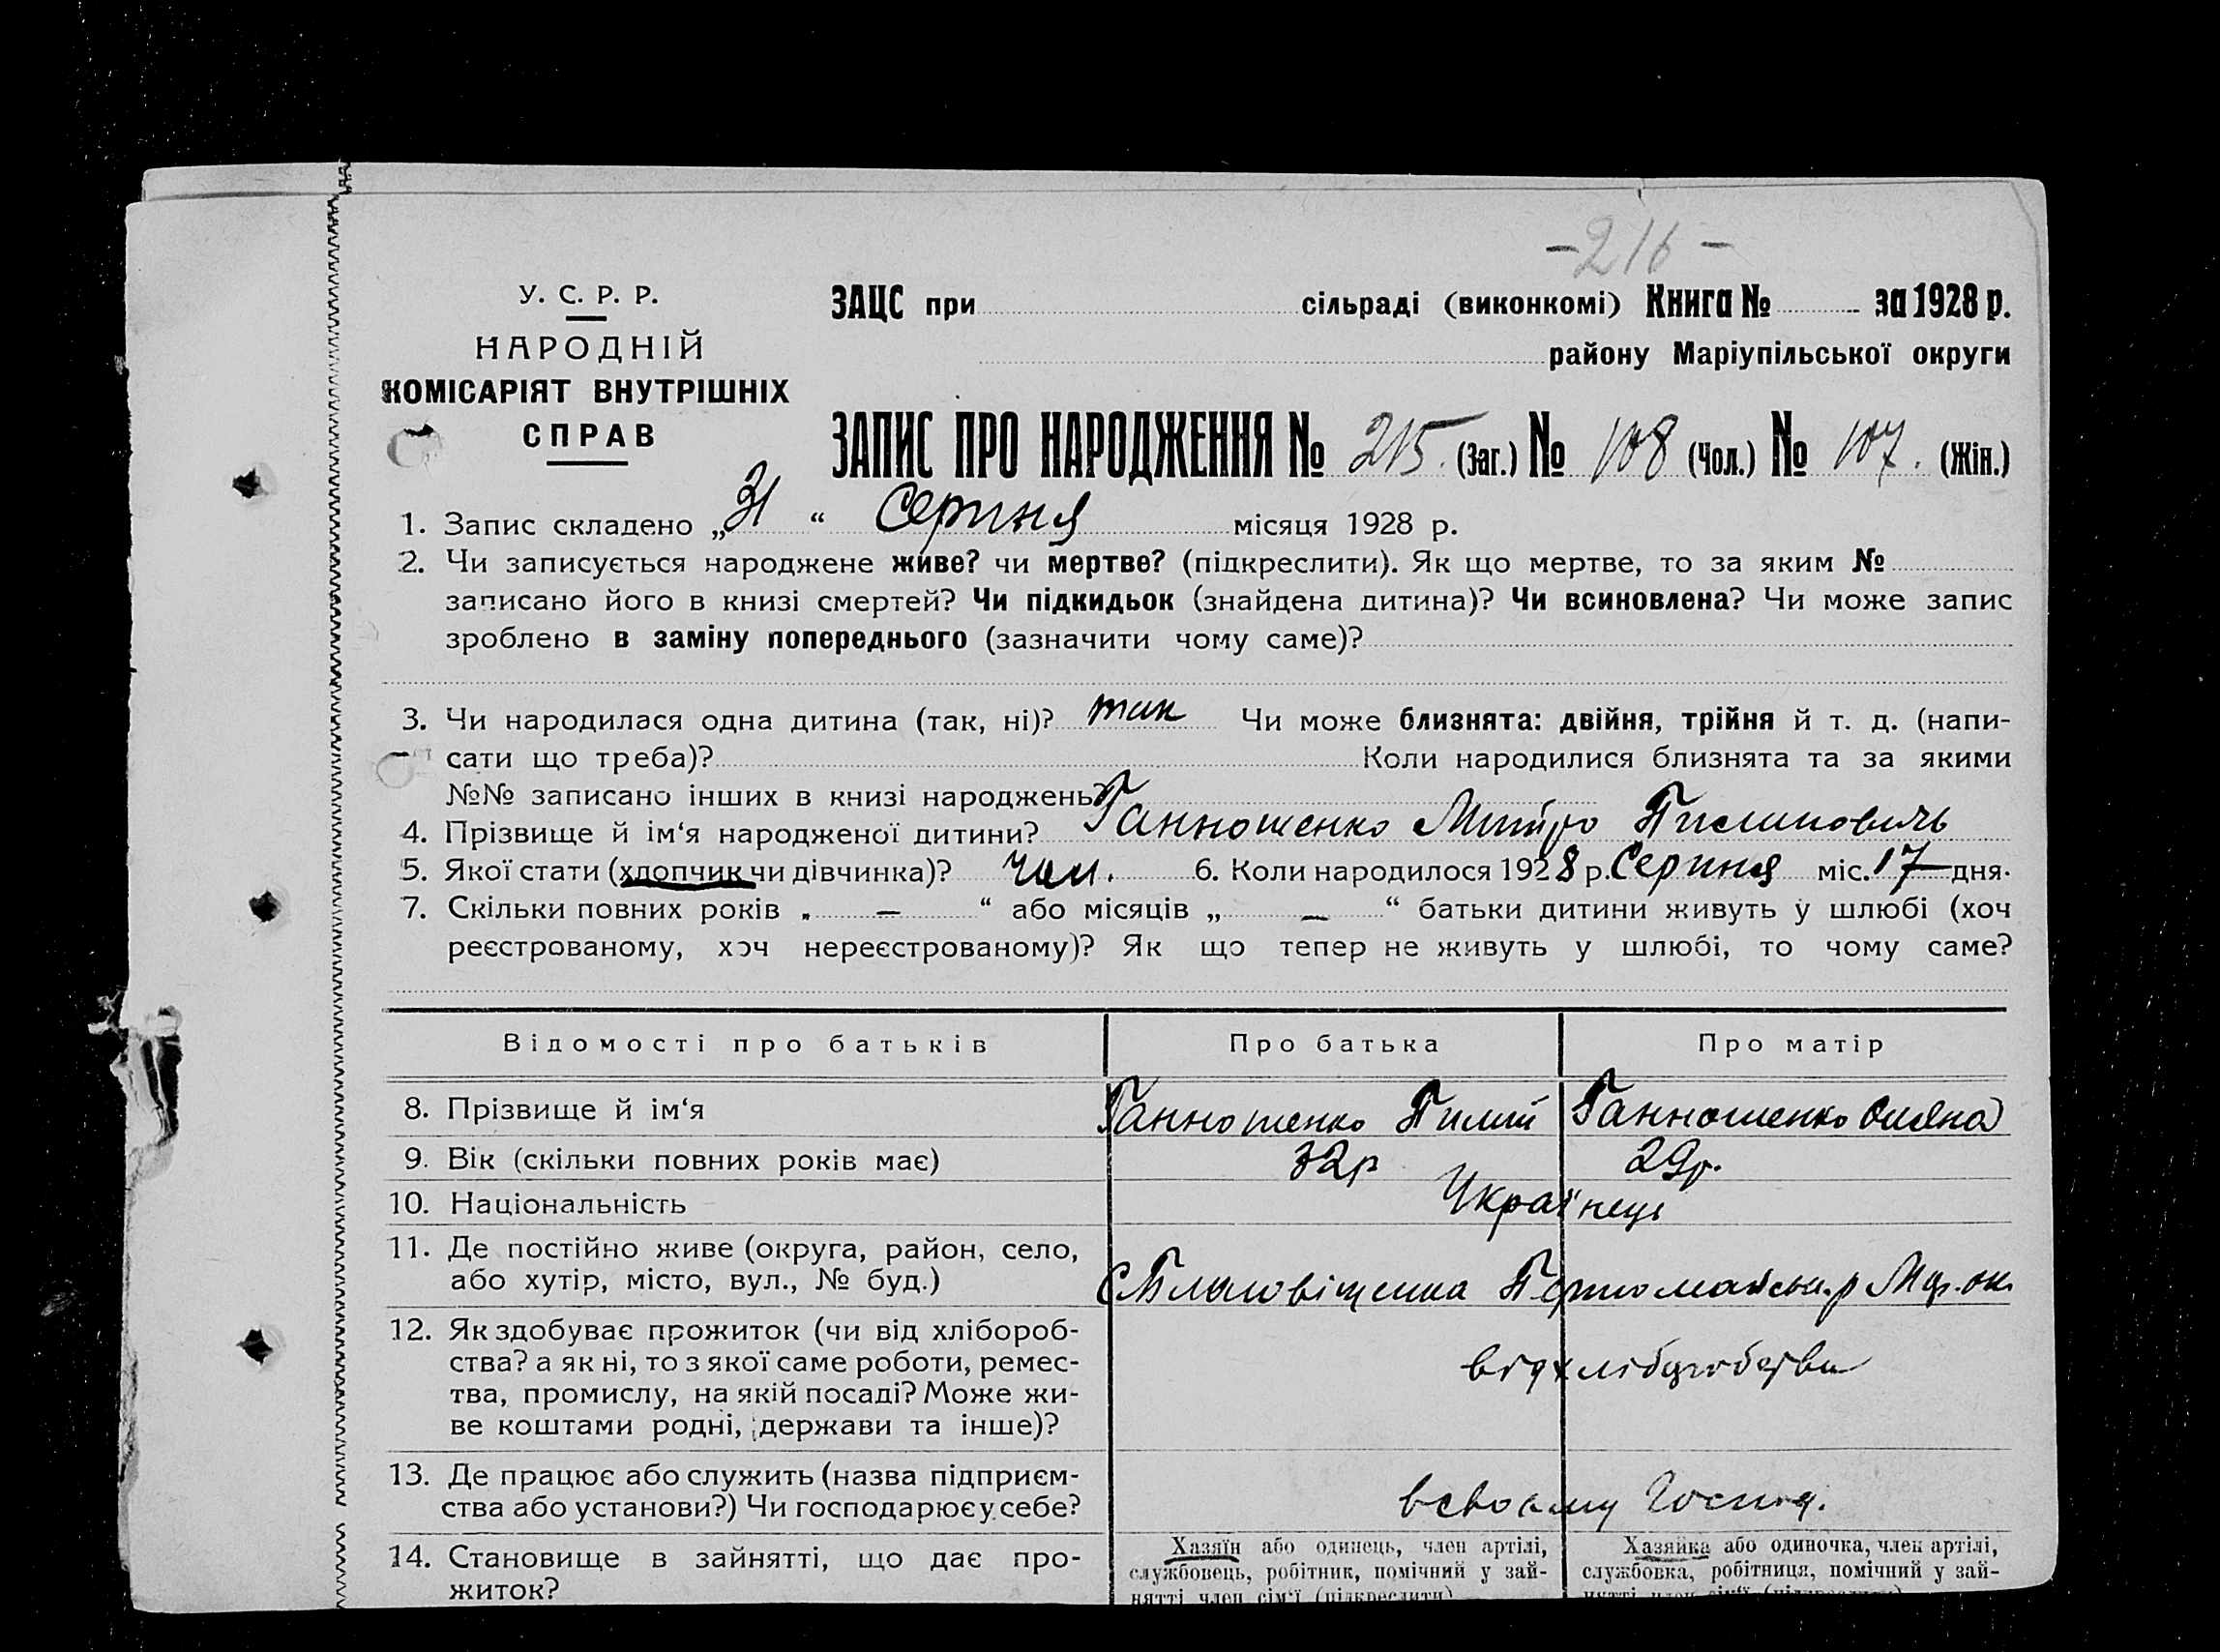 -216-
У. С. Р. Р.
НАРОДНІЙ
КОМІСАРІЯТ ВНУТРІШНІХ
СПРАВ
ЗАЦС при сільраді (виконкомі) Книга № за 1928 р.
району Маріупільської округи
ЗАПИС ПРО НАРОДЖЕННЯ № 215. (Заг.) № 108 (Чол.) № 107. (Жін.)
1. Запис складено „31“ Серпня місяця 1928 р.
2. Чи записується народжене живе? чи мертве? (підкреслити). Як що мертве, то за яким №
записано його в книзі смертей? Чи підкидьок (знайдена дитина)? Чи всиновлена? Чи може запис
зроблено в заміну попереднього (зазначити чому саме)?
3. Чи народилася одна дитина (так, ні)? так Чи може близнята: двійня, трійня й т. д. (напи-
сати що треба)? Коли народилися близнята та за якими
№№ записано інших в книзі народжень?
4. Прізвище й ім‘я народженої дитини? Ганношенко Митро Пилипович
5. Якої стати (хлопчик чи дівчинка)? чол. 6. Коли народилося 1928 р. Серпня міс. 17 дня.
7. Скільки повних років „ — “ або місяців „ — “ батьки дитини живуть у шлюбі (хоч
реєстрованому, хоч нереєстрованому)? Як що тепер не живуть у шлюбі, то чому саме?
Відомості про батьків Про батька Про матір
8. Прізвище й ім‘я Ганношенко Пилип Ганношенко
9. Вік (скільки повних років має) 32р 29р.
10. Національність Українець
11. Де постійно живе (округа, район, село,
або хутір, місто, вул., № буд.) с Благовіщенка Першомайськ. р Мар. ок.
12. Як здобуває прожиток (чи від хлібороб-
ства? а як ні, то з якої саме роботи, ремес-
тва, промислу, на якій посаді? Може жи-
ве коштами родні, держави та інше)?
від хліборобства
13. Де працює або служить (назва підприєм-
ства або установи?) Чи господарює у себе? в своєму Господ.
14. Становище в зайнятті, що дає про-
житок?
Хазяїн або одинець, член артілі,
службовець, робітник, помічний у зай-
нятті член сім‘ї (підкреслити)
Хазяйка або одиночка, член артілі,
службовка, робітниця, помічний у зай-
нятті член сім‘ї (підкреслити)